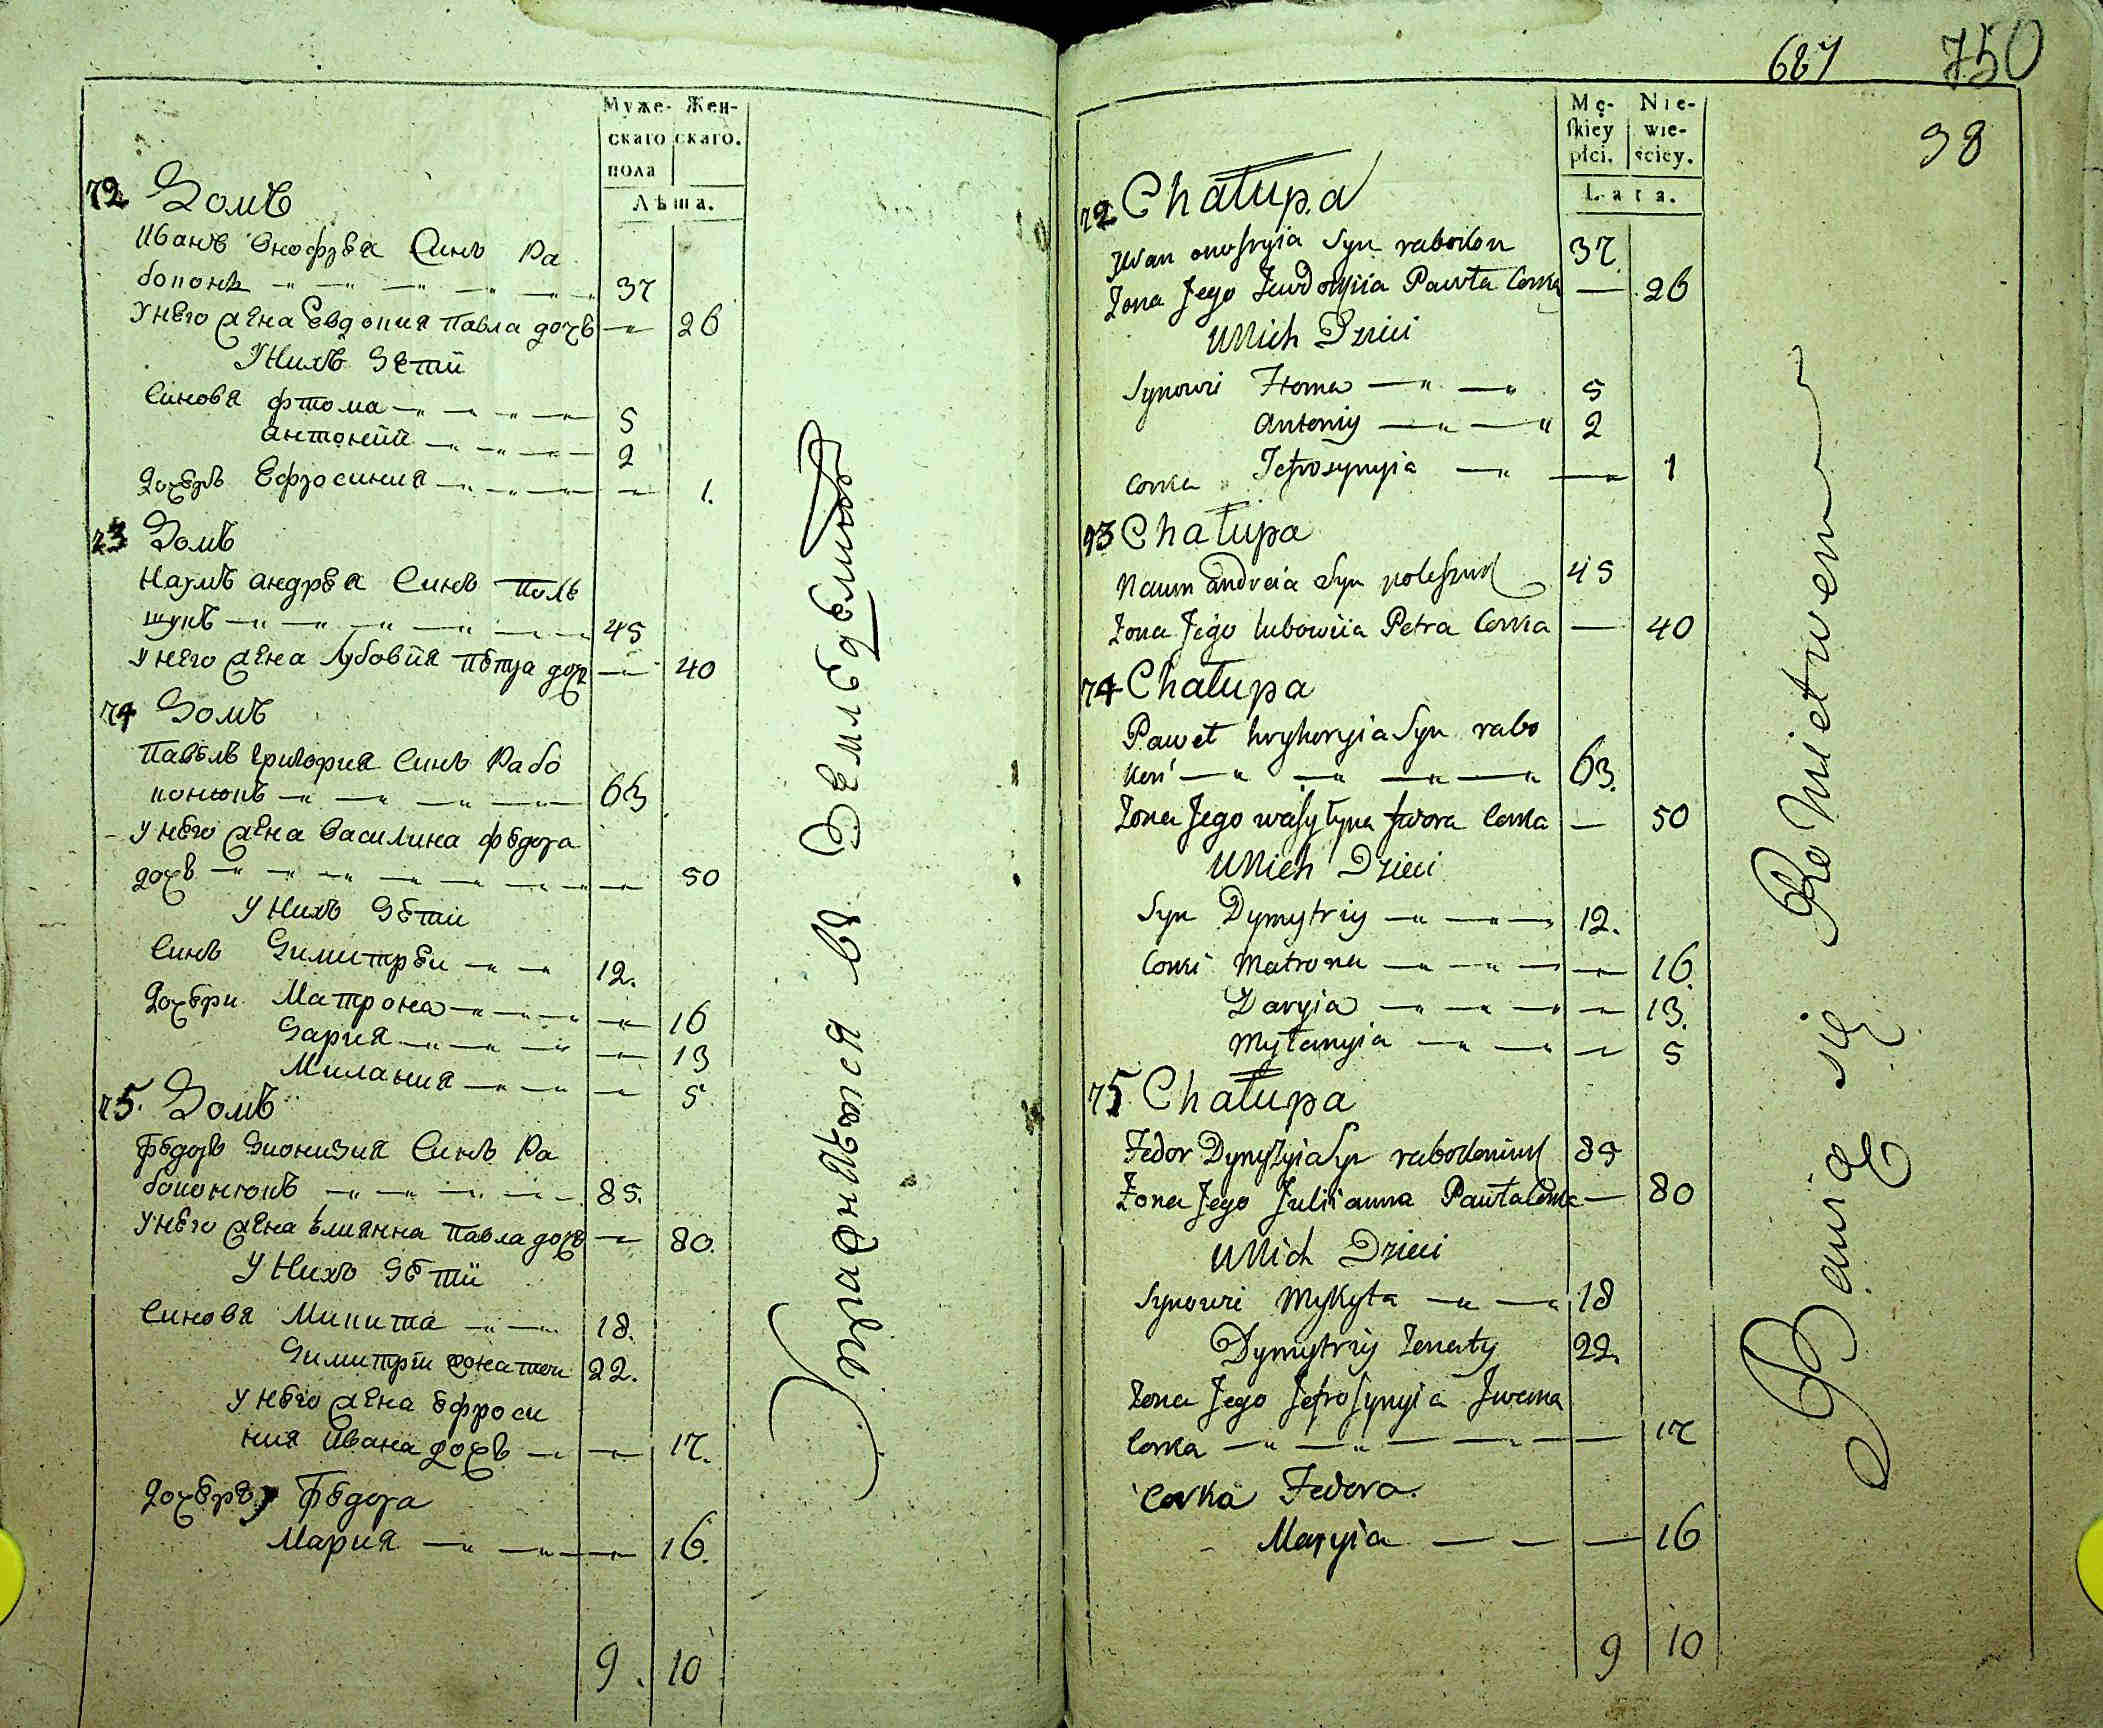 Муже- Жен-
скаго скаго.
пола
Лѣта.
72 Домъ
Иванъ Онофрѣя Синъ Ра
боконь 37
У него жена Евдокия Павла дочь 26
У Нихъ Дѣтй
Синовя Фтома 5
Антоний 2
Дочерь Ефросиния 1.
73 Домъ
Наумъ Андрѣя Синъ Поле
шукъ 45
У него жена Лубовйя Пѣтра доч 40
74 Домъ
Павѣлъ Григория Синъ Рабо
конюкъ 63
У него жена Василина Фѣдора
дочь 50
У Нихъ Дѣтий
Синъ Димитрѣи 12.
Дочѣри Матрона 16
Дария 13
Милания 5
75. Домъ
Фѣдоръ Дионизия Синъ Ра
боконюкъ 85.
У него жена Ѣлиянна Павла дочь 80.
У Нихъ Дѣтий
Синовя Микита 18.
Димитрѣй жонатои 22.
У него жена Ефроси
ния Ивана дочь 17.
Дочѣрь Фѣдора
Мария 16.
9. 10
687 750
98
Mę- Nie-
skiey wie-
płci. ściey.
Lata.
72 Chałupa
Jwan onofryia Syn rabokon 37
Zona Jego Jewdokyia Pawła Corka 26
U Nich Dzieci
Synowi Ftoma 5
Antoniy 2
Corka Jefrosynyia 1
73 Chałupa
Naum andreia Syn poleszuk 45
Zona Jego lubowiia Petra Corka 40
74 Chałupa
Paweł hryhoryia Syn rabo
kon 63.
Zona Jego wasylyna fedora Corka 50
U Nich Dzieci
Syn Dymytriy 12.
Corki Matrona 16.
Daryia 13.
Myłanyia 5
75 Chałupa
Fedor Dynyzyia Syn rabokoniuk 85
Zona Jego Juliianna Pawła Corka 80
U Nich Dzieci
Synowi Mykyta 18
Dymytriy Zenaty 22.
Zona Jego Jefrosynyia Jwana
Corka 17
Corka Fedora.
Maryia 16
9 10